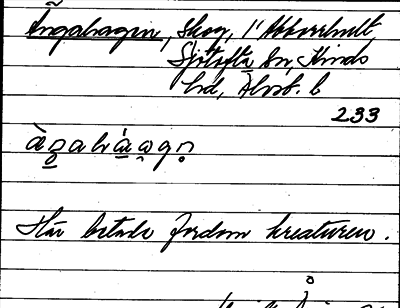 Ängahagen, skog, i Abborrhult,
Sjötofta sn, Kinds
hd, Älvsb. l
233
Här betade fordom kreaturen.